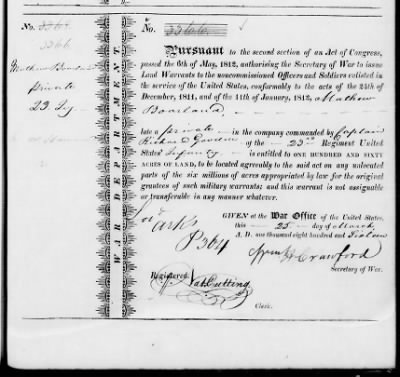 No.
3366
Mathew Boarland
private
23 Inf
WAR DEPARTMENT
No. 3366
Pursuant to the second section of an Act of Congress,
passed the 6th of May, 1812, authorising the Secretary of War to issue
Land Warrants to the noncommissioned Officers and Soldiers enlisted in
the service of the United States, conformably to the acts of the 24th of
December, 1811, and of the 11th of January, 1812, Mathew
Boarland
late a private in the company commanded by Captain
Richard Goodell of the 23rd Regiment United
States' Infantry is entitled to ONE HUNDRED AND SIXTY
ACRES OF LAND, to be located agreeably to the said act on any unlocated
parts of the six millions of acres appropriated by law for the original
grantees of such military warrants; and this warrant is not assignable
or transferable in any manner whatever.
GIVEN at the War Office of the United States,
this 25 day of March
A. D. one thousand eight hundred and Sixteen
Ark's
P 364
Wm H Crawford
Secretary of War.
Registered,
Nat Cutting
Clerk.